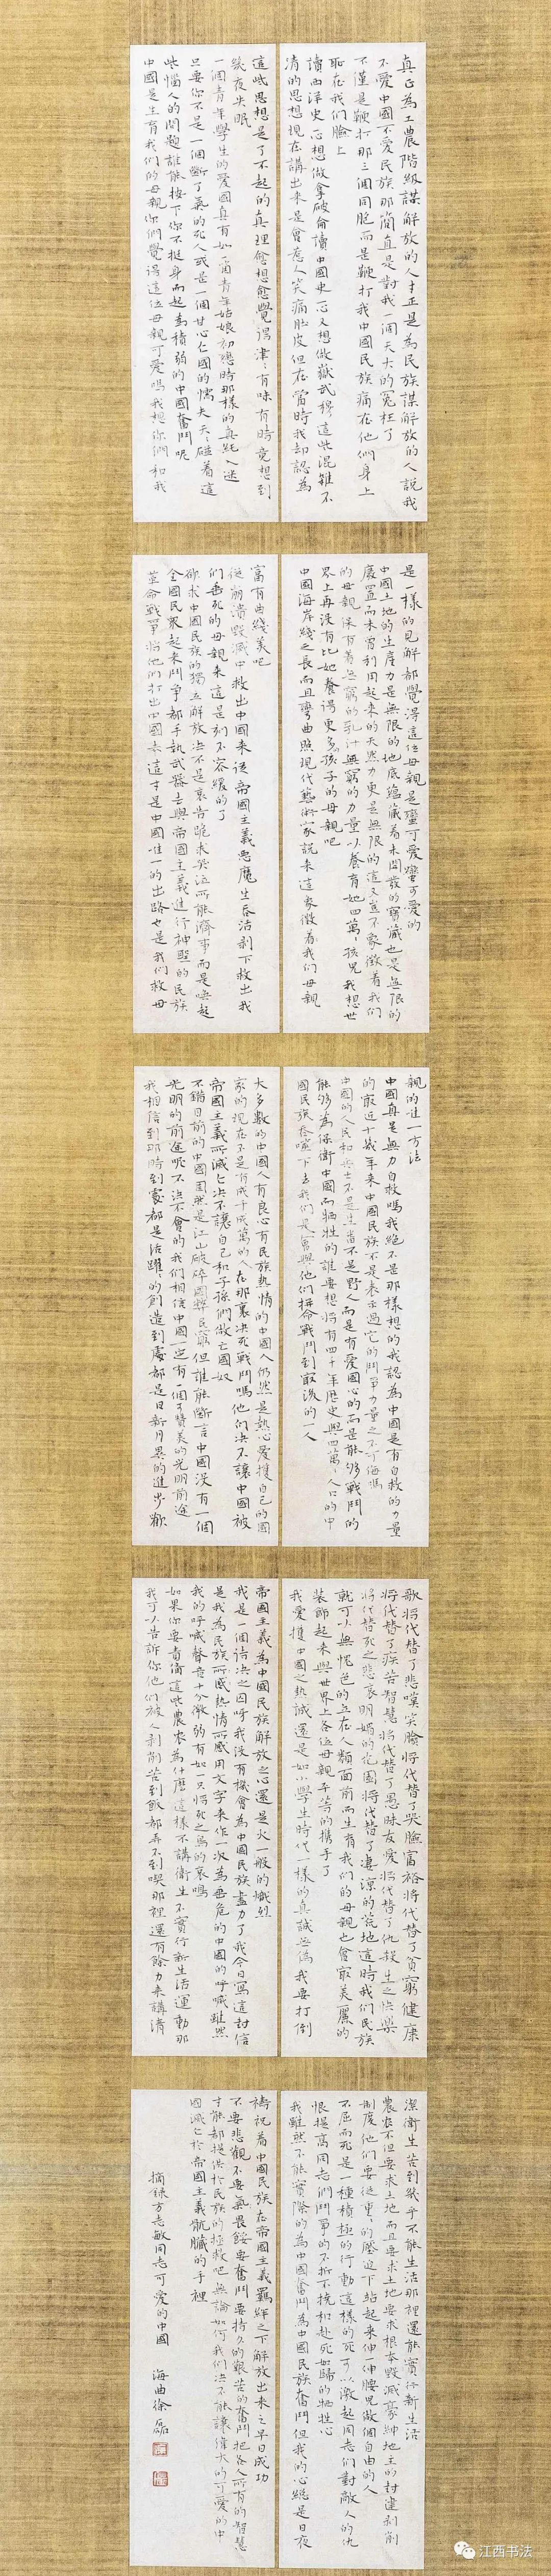 真正為工農階級謀解放的人才正是為民族謀解放的人說我
不愛中國不愛民族那簡直是對我一個天大的冤枉了
不僅是鞭打那三個同胞而是鞭打我中國民族痛在他們身上
恥在我們臉上
讀西洋史一心想做拿破侖讀中國史一心又想做嶽武穆這些混雜不
清的思想現在講出來是會惹人笑痛肚皮但在當時我却認為
這些思想是了不起的真理愈想愈覺得津々有味有時竟想到
幾夜失眠
一個青年學生的愛國真有如一個青年姑娘初戀時那樣的真純入迷
只要你不是一個斷了氣的死人或是一個甘心亡國的懦夫天々碰着這
些惱人的問題誰能按下你不挺身而起為積弱的中國奮鬥呢
中國是生育我們的母親你們覺得這位母親可愛嗎我想你們和我
是一樣的見解都覺得這位母親是蠻可愛蠻可愛的
中國土地的生產力是無限的地底蘊藏着未開發的寶藏也是無限的
廢置而未曾利用起來的天然力更是無限的這又豈不象徵着我們
的母親保有着無窮的乳汁無窮的力量以養育她四萬々孩兒我想世
界上再沒有比她養得更多孩子的母親吧
中國海岸綫之長而且彎曲照現代藝術家說來這象徵着我們母親
富有曲綫美吧
從崩潰毀滅中救出中國來從帝國主義惡魔生吞活剥下救出我
們垂死的母親來這是刻不容緩的了
欲求中國民族的獨立解放决不是哀告跪求哭泣所能濟事而是喚起
全國民眾起來鬥争都手執武器去與帝國主義進行神聖的民族
革命戰争將他們打出中國去這才是中國惟一的出路也是我們救母
親的唯一方法
中國真是無力自救嗎我絕不是那樣想的我認為中國是有自救的力量
的最近十幾年來中國民族不是表示過它的鬥争力量之不可侮嗎
中國的人民和兵士不是生番不是野人而是有愛國心的而是能够戰鬥的
能够為保衛中國而犧牲的誰要想將有四千年歷史與四萬々人口的中
國民族吞噬下去我們是會與他們拼命戰鬥到最後的一人
大多數的中國人有良心有民族熱情的中國人仍然是熱心愛護自己的國
家的現在不是有成千成萬的人在那裏決死戰鬥嗎他們決不讓中國被
帝國主義所滅亡決不讓自己和子孫們做亡國奴
不錯目前的中國固然是江山破碎國弊民窮但誰能斷言中國沒有一個
光明的前途呢不決不會的我們相信中國一定有一個可贊美的光明前途
我相信到那時到處都是活躍々的創造到處都是日新月異的進步歡
歌將代替了悲嘆笑臉將代替了哭臉富裕將代替了貧窮健康
將代替了疾苦智慧將代替了愚昧友愛將代替了仇殺生之快樂
將代替死之悲哀明媚的花園將代替了凄涼的荒地這時我們民族
就可以無愧色的立在人類面前而生育我們的母親也會最美麗的
裝飾起來與世界上各位母親平等的携手了
我愛護中國之熱誠還是如小學生時代一樣的真誠無偽我要打倒
帝國主義為中國民族解放之心還是火一般的熾烈
我是一個待決之囚呀我沒有機會為中國民族盡力了我今日寫這封信
是我為民族所感熱情所感用文字來作一次為垂危的中國的呼喊雖然
我的呼喊聲音十分微弱有如一只將死之鳥的哀鳴
如果你要責備這些農衆為什麽這樣不講衛生不實行新生活運動那
我可以告訴你他們被人剥削苦到飯都弄不到喫那裡還有餘力來講清
潔衛生苦到幾乎不能生活那裡還能實行新生活
農衆不但要求土地而且要求土地要求根本毀滅豪紳地主的封建剥削
制度他們要從重々的壓迫下站起來伸一伸腰兒做個自由的人
不屈而死是一種積極的行動這樣的死可以激起同志們對敵人的仇
恨提高同志們鬥争的不折不撓和赴死如歸的犧牲心
我雖然不能實際的為中國奮鬥為中國民族奮鬥但我的心總是日夜
禱祝着中國民族在帝國主義羈絆之下解放出來之早日成功
不要悲觀不要氣畏餒要奮鬥要持久的艱苦的奮鬥把各人所有的智慧
才能都提供於民族的拯救吧無論如何我們決不能讓偉大的可愛的中
國滅亡於帝國主義骯臟的手裡
摘録方志敏同志可愛的中國　海曲徐磊
江西书法